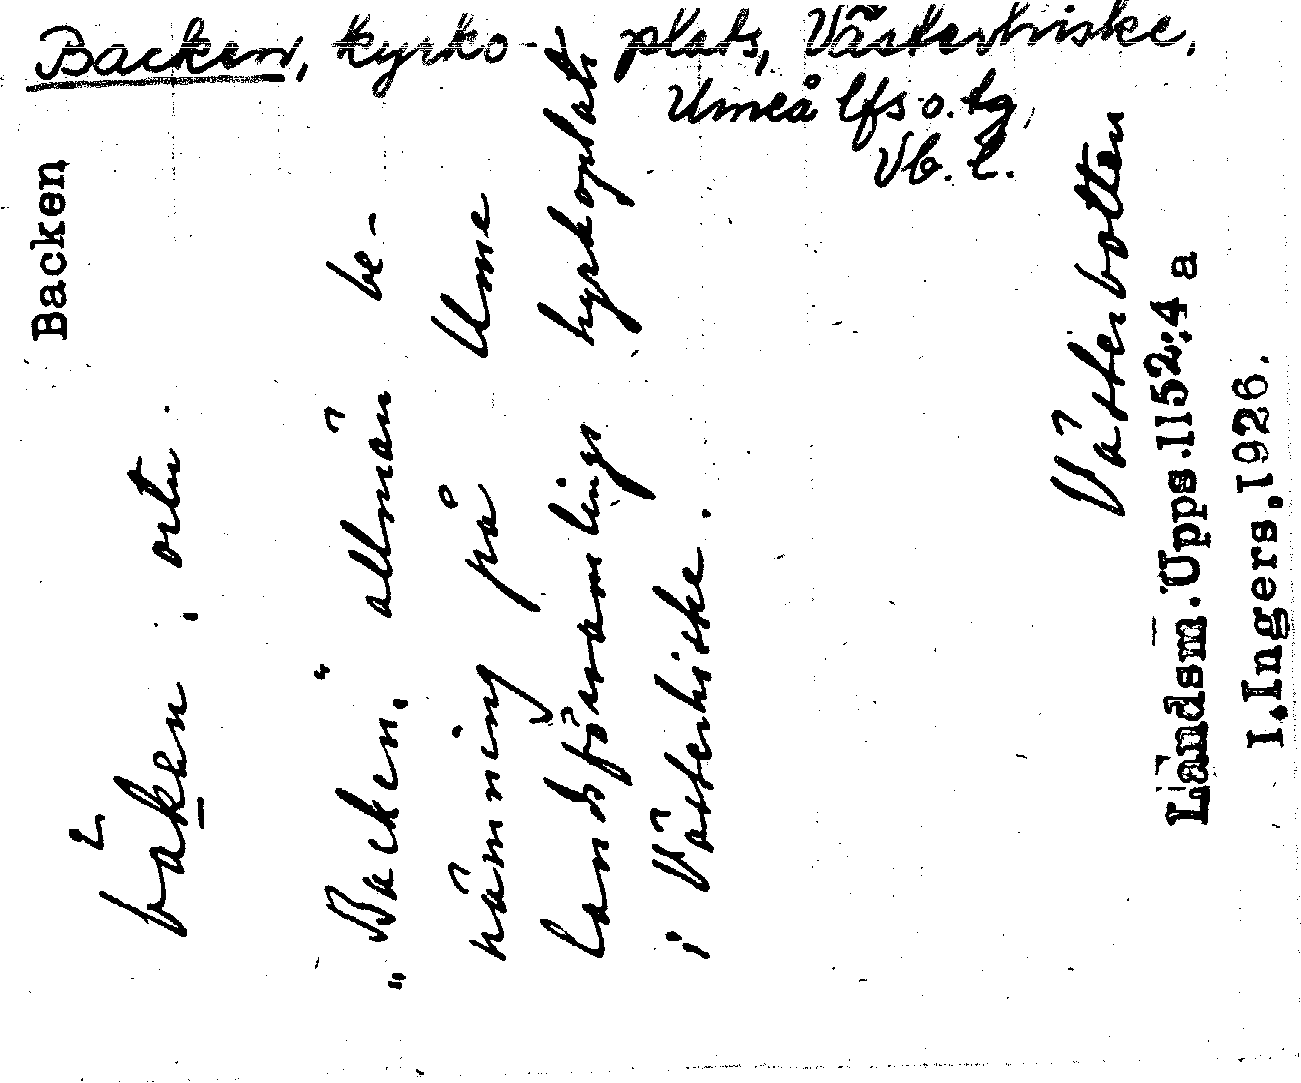 Backen, kyrkoplats, Västerhiske,
Umeå lfs o. tg,
Vb. l.
Backen
båken, ortn.
"Backen," allmän be-
nämning på Ume
landsförsamlings kyrkoplats
i Västerhiske.
Västerbotten
Landsm. Upps. 1152:4 a
I. Ingers, 1926.